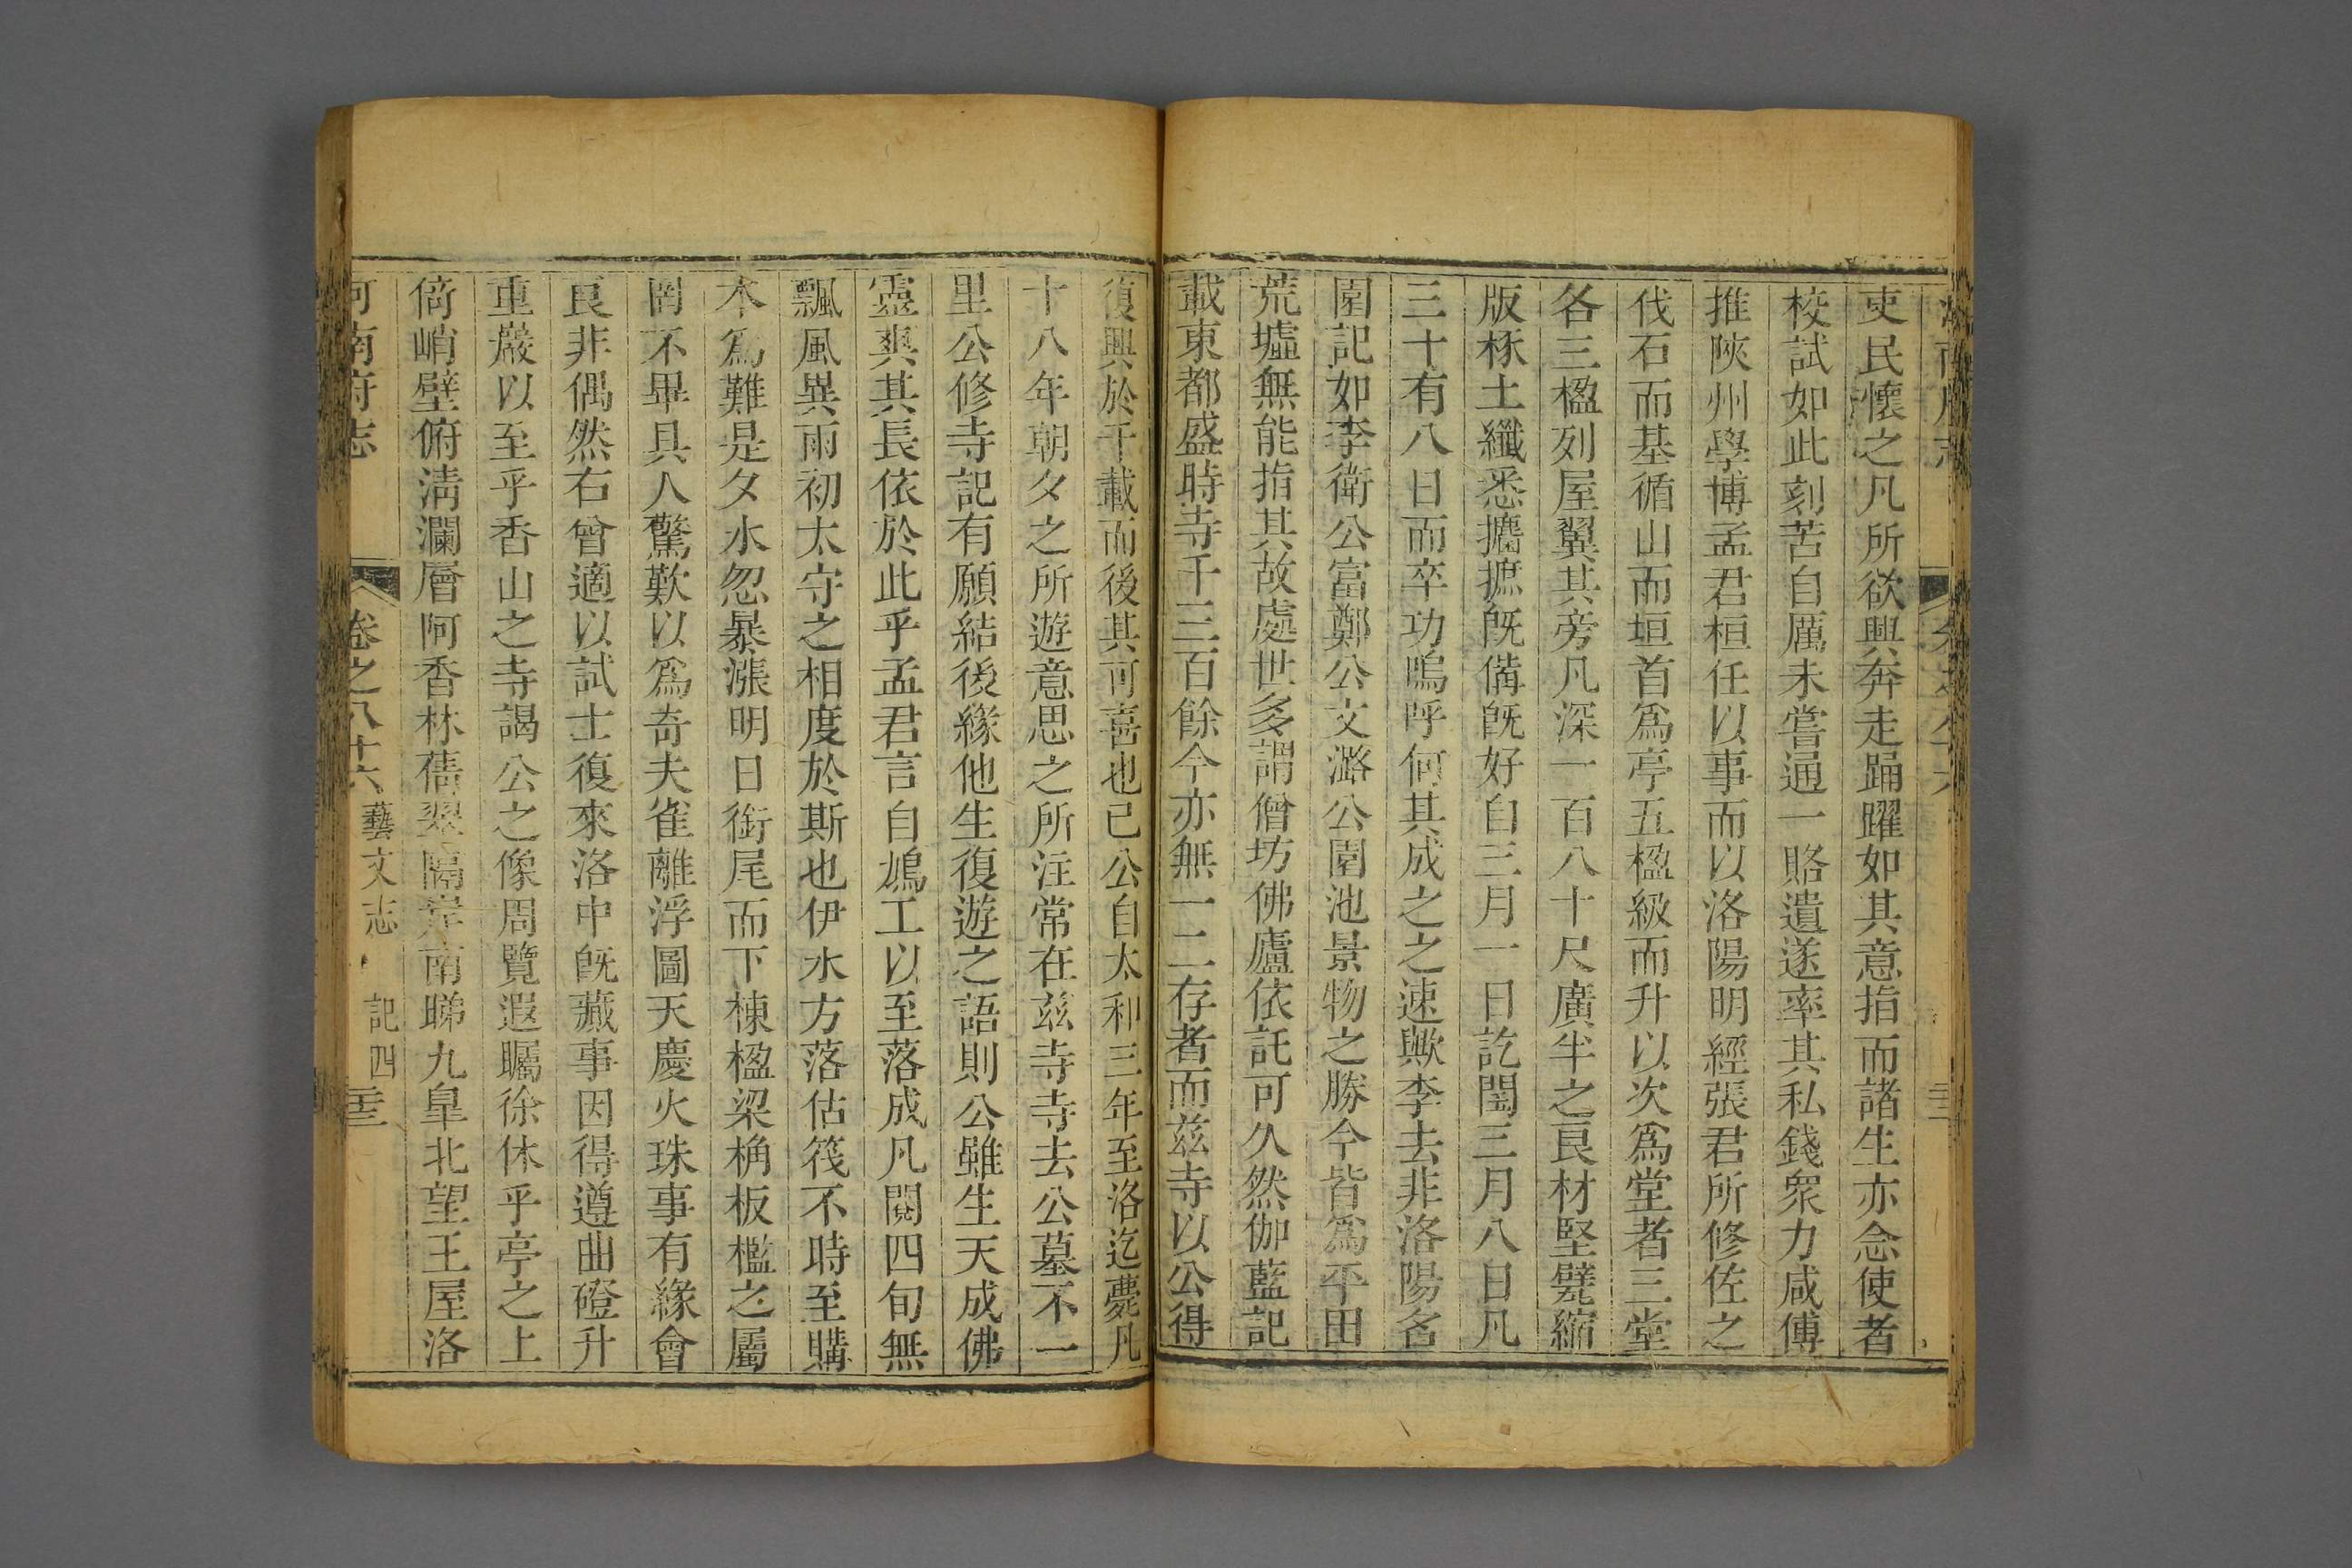 吏民懷之凡所欲興奔走踊躍如其意指而諸生亦念使者
校試如此刻苦自厲未嘗通一賂遺遂率其私錢衆力咸傅
推陝州學博孟君桓任以事而以洛陽明經張君所修佐之
伐石而基循山而垣首爲亭五楹級而升以次爲堂者三堂
各三楹列屋翼其旁凡深一百八十尺廣半之良材堅甓縮
版椓土纖悉攟摭旣備旣好自三月一日訖閏三月八日凡
三十有八日而卒功嗚呼何其成之之速歟李去非洛陽名
園記如李衛公富鄭公文潞公園池景物之勝今皆爲平田
荒墟無能指其故處世多謂僧坊佛廬依託可久然伽藍記
載東都盛時寺千三百餘今亦無一二存者而茲寺以公得
復興於千載而後其可喜也已公自太和三年至洛迄薨凡
十八年朝夕之所遊意思之所注常在茲寺寺去公墓不一
里公修寺記有願結後緣他生復遊之語則公雖生天成佛
靈爽其長依於此乎孟君言自鳩工以至落成凡閱四旬無
飄風異雨初太守之相度於斯也伊水方落估筏不時至購
木爲難是夕水忽暴漲明日銜尾而下棟楹梁桷板檻之屬
罔不畢具人驚歎以爲奇夫雀離浮圖天慶火珠事有緣會
良非偶然右曾適以試士復來洛中旣蕆事因得遵曲磴升
重巖以至乎香山之寺謁公之像周覽遐矚徐休乎亭之上
倚峭壁俯淸瀾層阿香林蒨翠隔岸南睇九皐北望王屋洛
河南府志 卷之八十六 藝文志 記四